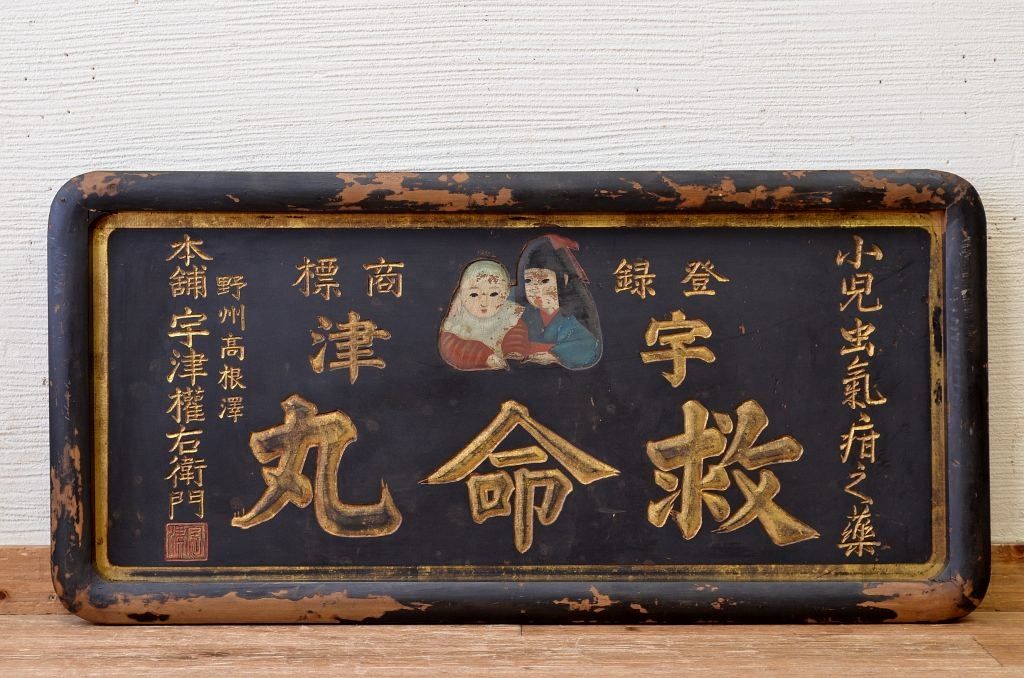 小児虫氣疳之藥
登録商標
宇津
救命丸
野州高根澤
本舗宇津權右衛門